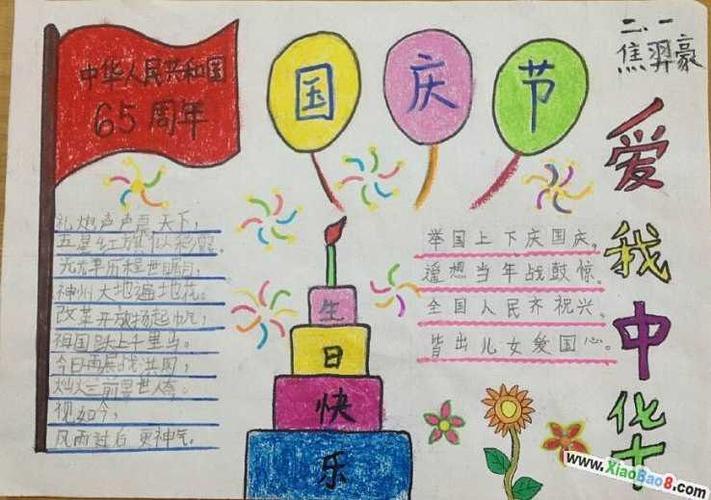 中华人民共和国
65周年
国庆节
二.一
焦羿豪
爱我中华
礼炮声声震天下，
五星红旗似彩霞。
光辉历程世瞩目，
神州大地遍地花。
改革开放扬起帆，
祖国跃上千里马。
今日再展战洪图，
灿烂前景世人夸。
视如今，
风雨过后更神气。
举国上下庆国庆。
遥想当年战鼓惊。
全国人民齐祝兴。
皆出儿女爱国心。
生
日
快
乐
www.XiaoBao8.com